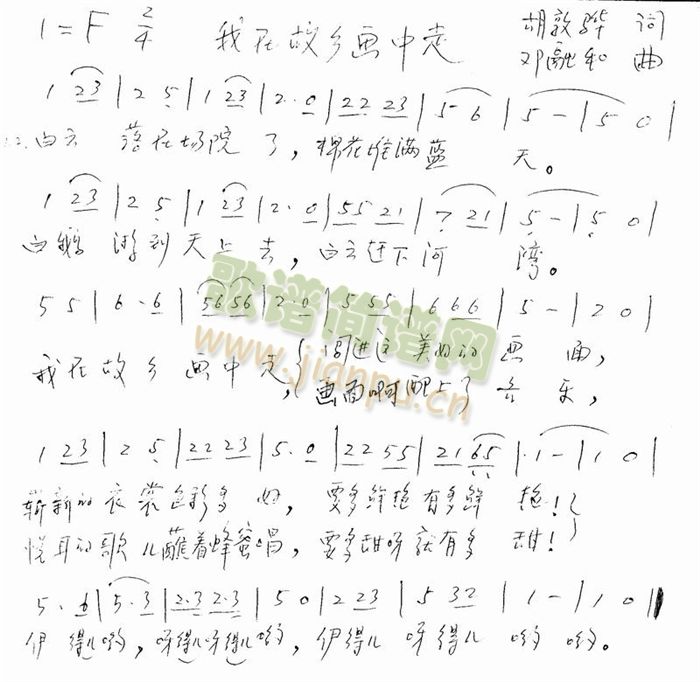 1=F 2/4 我在故乡画中走 胡敦骅 词
邓融和 曲
1 23 | 2 5 | 1 23 | 2· 0 | 22 23 | 5 6 | 5 - | 5 0 |
白云 落在场院 了，棉花堆满蓝 天。
1 23 | 2 5 | 1 23 | 2· 0 | 55 21 | 7 21 | 5 - | 5 0 |
白鹅 游到天上去，白云迁下河 湾。
5 5 | 6 · 6 | 56 56 | 2· 0 | 5 55 | 6 66 | 5 - | 2 0 |
我在故乡画中走，(闯进这美好的画面，
画面啊配上了音乐，
1 23 | 2 5 | 22 23 | 5· 0 | 22 55 | 21 65 | 1 - | 1 0 |
崭新的衣裳色彩多好，要多鲜艳有多鲜艳！
悦耳的歌儿蘸着蜂蜜唱，要多甜呀就有多甜！
5 · 6 | 5·3 | 2·3 2·3 | 5 0 | 2 23 | 5 32 | 1 - | 1 0 |
伊得儿哟，呀得儿呀得儿哟，伊得儿呀得儿哟哟。
歌谱简谱网
www.jianpu.cn